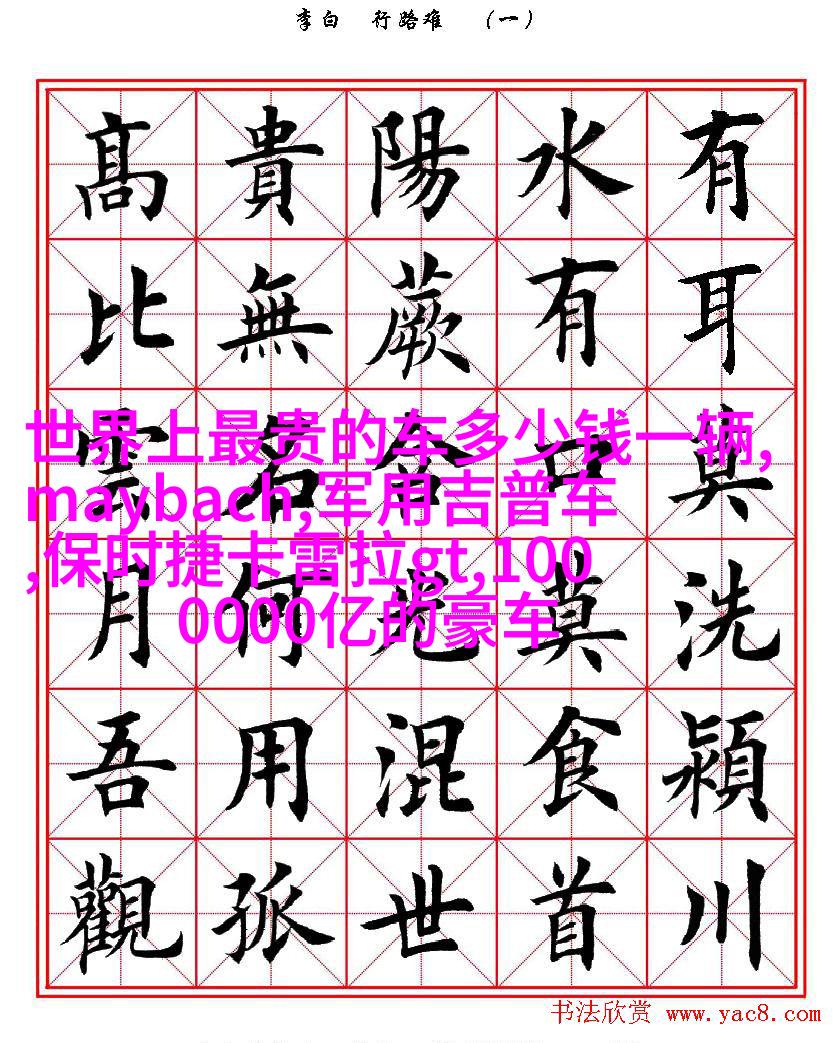 李白 行路难 （一）
有耳莫洗潁川
水有口莫食首
陽蕨含光混世
貴無名何用孤
髙比雲月吾觀
世界上最贵的车多少钱一辆,
maybach,军用吉普车
,保时捷卡雷拉gt,100
0000亿的豪车
书法欣赏 www.yac8.com